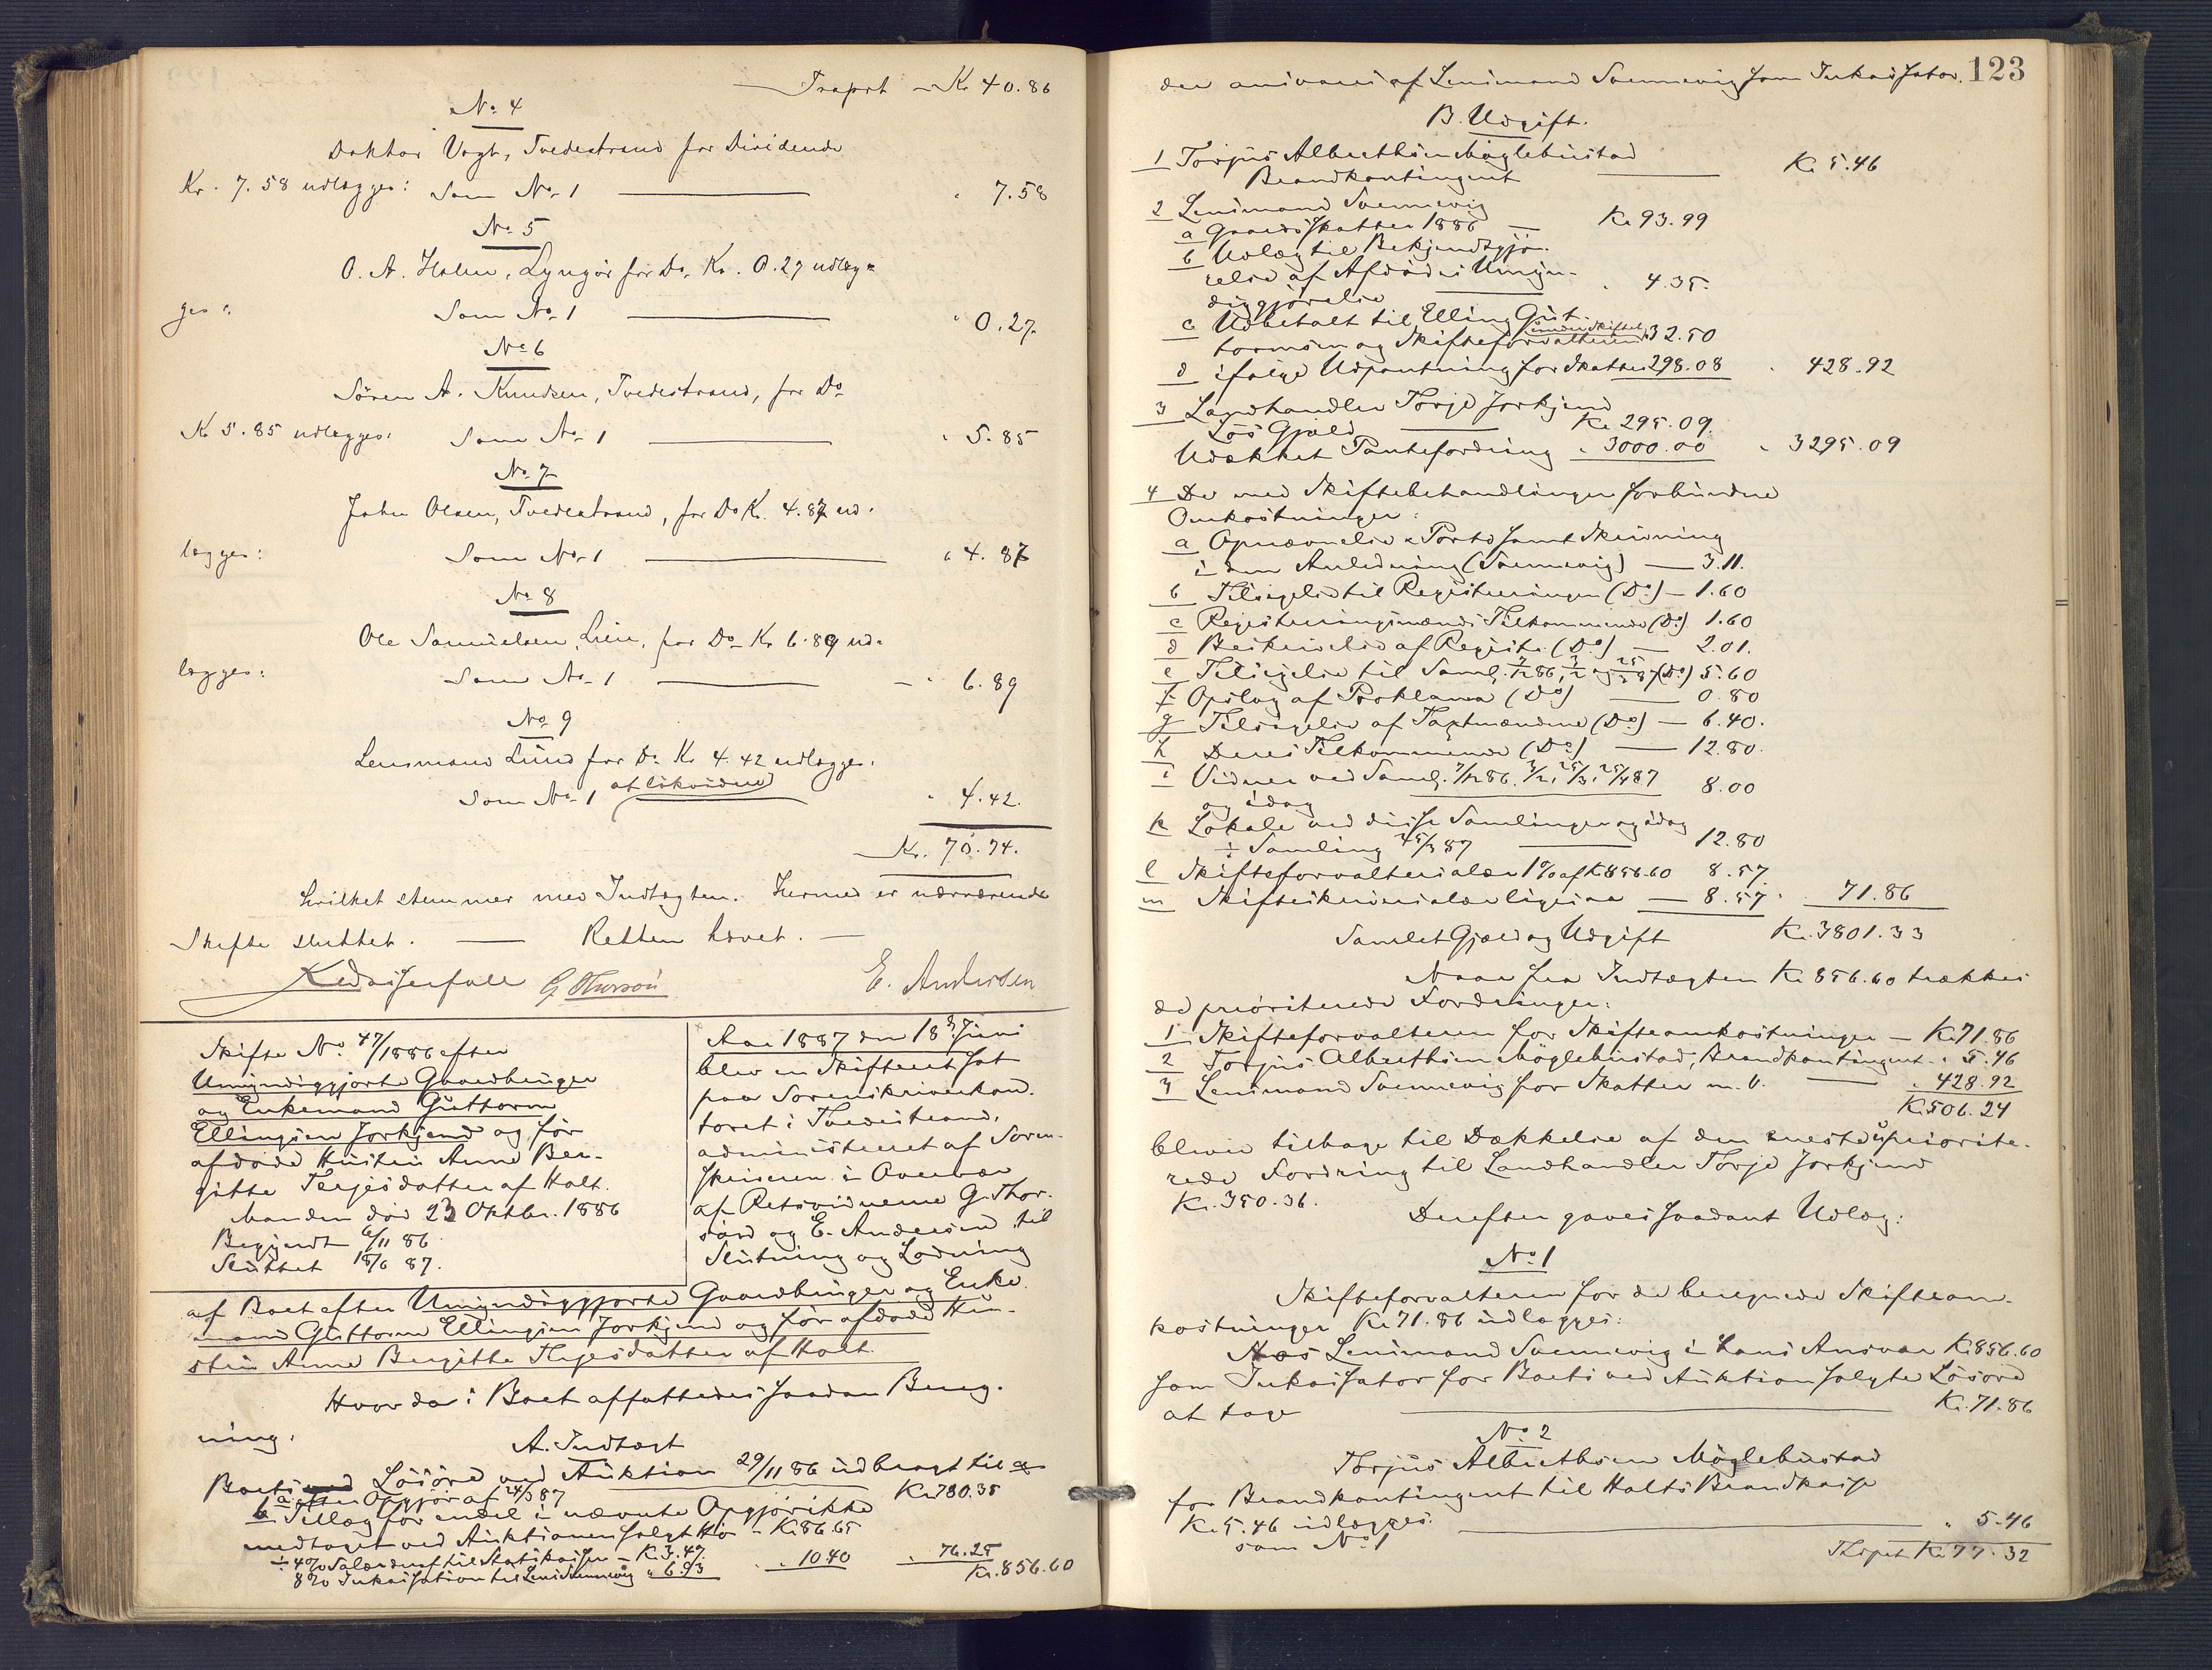 Traprt Kr 40.86
No 4
Doktor Vogt, Tvedestrand for Dividende
Kr. 7.58 udlægges: Som No 1 " 7.58
No 5
O. A. Holm, Lyngør for Do. Kr. 0.27 udlæg=
ges: Som No 1 " 0.27.
No 6
Søren A. Knudsen, Tvedestrand, for Do
Kr 5.85 udlægges: Som No 1 " 5.85
No 7
John Olsen, Tvedestrand, for Do Kr. 4.87 ud=
lægges: Som No 1 " 4.87
No 8
Ole Samuelsen, Lien, for Do Kr 6.89 ud=
lægges: Som No 1 " 6.89
No 9
Lensmand Lund for Do Kr 4.42 udlægges:
Som No 1 af likvidene " 4.42.
Kr. 70.74.
hvilket stemmer med Indtægten. Hermed er nærværende
Skifte sluttet. — Retten hævet. —
G. Thorsön E. Andersen
Skifte No. 47/1886 efter
Umyndiggjorte Gaardbruger
og Enkemand Guttorm
Ellingsen Jorkjend og før
afdøde Hustru Anne Ber-
gitte Terjesdatter af Holt.
Manden død 23 Oktbr. 1886
Begyndt 6/11 86.
Sluttet 18/6 87.
Aar 1887 den 18de Juni
blev en Skifteret sat
paa Sorenskriverkon-
toret i Tvedestrand,
administreret af Soren-
skriveren i Overvær
af Retsvidnerne G. Thor-
sön og E. Andersen til
Slutning og Lodning
af Boet efter Umyndiggjorte Gaardbruger og Enke-
mand Guttorm Ellingsen Jorkjend og før afdøde Hu-
stru Anne Bergitte Terjesdatter af Holt.
Hvorda i Boet affattedes saadan Bereg-
ning:
A. Indtægt
Boets Løsøre ved Auktion 29/11 86 udbragt til
a efter Opgjør af 24/3 87 Kr 780.35
b Tillæg for endel i nævnte Opgjør ikke
medtaget ved Auktionen solgt Hø - Kr 86.65
÷ 4% Salær deraf til Statskassen - Kr. 3.47.
8% Inkassation til Lensm Svennevig " 6.93 " 10.40 " 76.25
Kr. 856.60
123
der ansvares af Lensmand Svennevig som Inkassator.
B. Udgift.
1 Torjus Alberthsen Møglebustad
Brandkontingent Kr 5.46
2 Lensmand Svennevig
a Gaardsskatter 1886 — Kr 93.99
b Udlæg til Bekjendtgjø-
relse af Afdødes Umyn-
diggjørelse " 4.35.
c Udbetalt til Elling Gut-
tormsen og Skifteforvalteren 32.50
d ifølge Udpantning for Skatter 298.08 " 428.92
3 Landhandler Torje Jorkjend
Løs Gjæld Kr 295.09.
Udækket Pantefordring " 3000.00 " 3295.09
4 De med Skiftebehandlingen forbundne
Omkostninger:
a Opnævnelse & Porto samt Skrivning
i den Anledning (Svennevig) — 3.11.
b Tilsigelse til Registreringen (Do) — 1.60
c Registreringsmænds Tilkommende (Do) 1.60
d Beskrivelse af Registr. (Do) — 2.01.
e Tilsigelse til Saml. (Do) 5.60
f Opslag af Proklama (Do) 0.80
g Tilsigelse af Taxtmændene (Do) — 6.40.
h Deres Tilkommende (Do) — 12.80.
i Vidner ved Saml. 7/12 86. 3/2, 25/3, 25/4 87
og idag 8.00
k Lokale ved disse Samlinger og idag
÷ Samling 25/3 87 12.80
l Skifteforvaltersalær 1% af Kr 856.60 8.57
m Skifteskriversalær ligesaa — 8.57. 71.86
Samlet Gjæld og Udgift Kr. 3801.33
Naar fra Indtægten Kr 856.60 trækkes
de prioriterede Fordringer:
1 Skifteforvalteren for Skifteomkostninger — Kr 71.86
2 Torjus Alberthsen Møglebustad, Brandkontingent " 5.46
3 Lensmand Svennevig for Skatter m. v. " 428.92
Kr. 506.24
bliver tilbage til Dækkelse af den eneste upriorite-
rede Fordring til Landhandler Torje Jorkjend
Kr. 350.36.
Derefter gaves saadant Udlæg:
No 1
Skifteforvalteren for de beregnede Skifteom-
kostninger Kr 71.86 udlægges:
Hos Lensmand Svennevig i hans Ansvar Kr 856.60
som Inkassator for Boets ved Auktion solgte Løsøre
at tage Kr. 71.86
No 2
Torjus Alberthsen Møglebustad
for Brandkontingent til Holts Brandkasse
Kr 5.46 udlægges:
som No 1 " 5.46
Trspt Kr 77.32